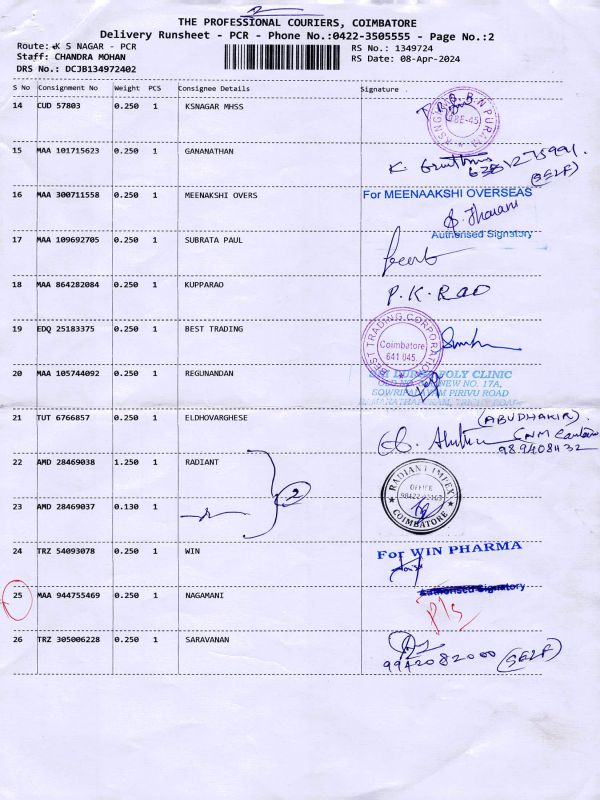 2
THE PROFESSIONAL COURIERS, COIMBATORE
Delivery Runsheet - PCR - Phone No.:0422-3505555 - Page No.:2
Route: K S NAGAR - PCR
RS No.: 1349724
Staff: CHANDRA MOHAN
RS Date: 08-Apr-2024
DRS No.: DCJB134972402
S No Consignment No Weight PCS Consignee Details Signature .
14 CUD 57803 0.250 1 KSNAGAR MHSS
15 MAA 101715623 0.250 1 GANANATHAN
K.
(SELF)
16 MAA 300711558 0.250 1 MEENAKSHI OVERS For MEENAAKSHI OVERSEAS
Authorised Signatory
17 MAA 109692705 0.250 1 SUBRATA PAUL
18 MAA 864282084 0.250 1 KUPPARAO P.K.RAO
19 EDQ 25183375 0.250 1 BEST TRADING BEST TRADING CORPORATION Coimbatore 641 045.
20 MAA 105744092 0.250 1 REGUNANDAN POLY CLINIC
NEW NO. 17A,
GOWRIPALAYAM PIRIVU ROAD
21 TUT 6766857 0.250 1 ELDHOVARGHESE (ABUDHAKIR)
9894081132
22 AMD 28469038 1.250 1 RADIANT RADIANT IMPEX OFFICE COIMBATORE
2
23 AMD 28469037 0.130 1
24 TRZ 54093078 0.250 1 WIN For WIN PHARMA
Authorised Signatory
25 MAA 944755469 0.250 1 NAGAMANI P/s
26 TRZ 305006228 0.250 1 SARAVANAN
9942082000 (SELF)